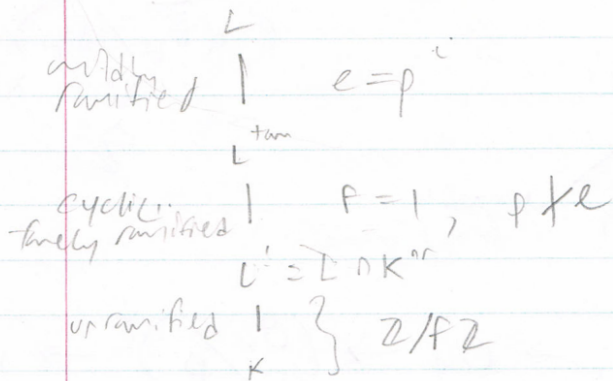 L
wildly
ramified | e = p^i
L^tam
cyclic.
tamely ramified | f = 1, p ∤ e
L' = L ∩ K^nr
unramified | } Z/fZ
K